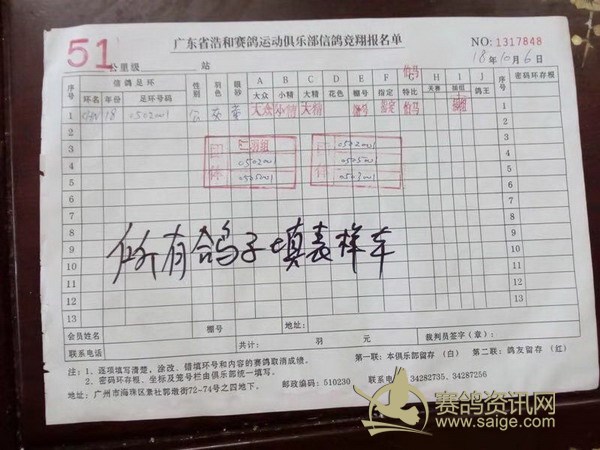 广东省浩和赛鸽运动俱乐部信鸽竞翔报名单
51 公里级 站
NO: 1317848
18年10月6日
序号 信鸽足环 性别 羽色 眼砂 A B C D E F G H I J 序号 密码环存根
环名 年份 足环号码 大众 小精 大精 花色 棚号 指定 特比 天赛 鸽王
1 18 0502001 公 灰 黄 大众 小精 大精 棚号 指定 1
2 2
3 3
4 4
5 5
6 6
7 7
8 8
9 9
10 10
11 11
12 12
13 13
0502001
0505001
0502001
0505001
0503001
所有鸽子填表样车
会员姓名 棚号 地址:
联系电话 共计: 羽 元 裁判员签字(章):
注: 1、逐项填写清楚, 涂改、错填环号和内容的赛鸽取消成绩。 第一联: 本俱乐部留存 (白) 第二联: 鸽友留存 (红)
2、密码环存根、坐标及笼号栏由俱乐部统一填写。
地址: 广州市海珠区素社郭墩街72-74号之四地下。 邮政编码: 510230 联系电话: 34282735、34287256
赛鸽资讯网
www.saige.com